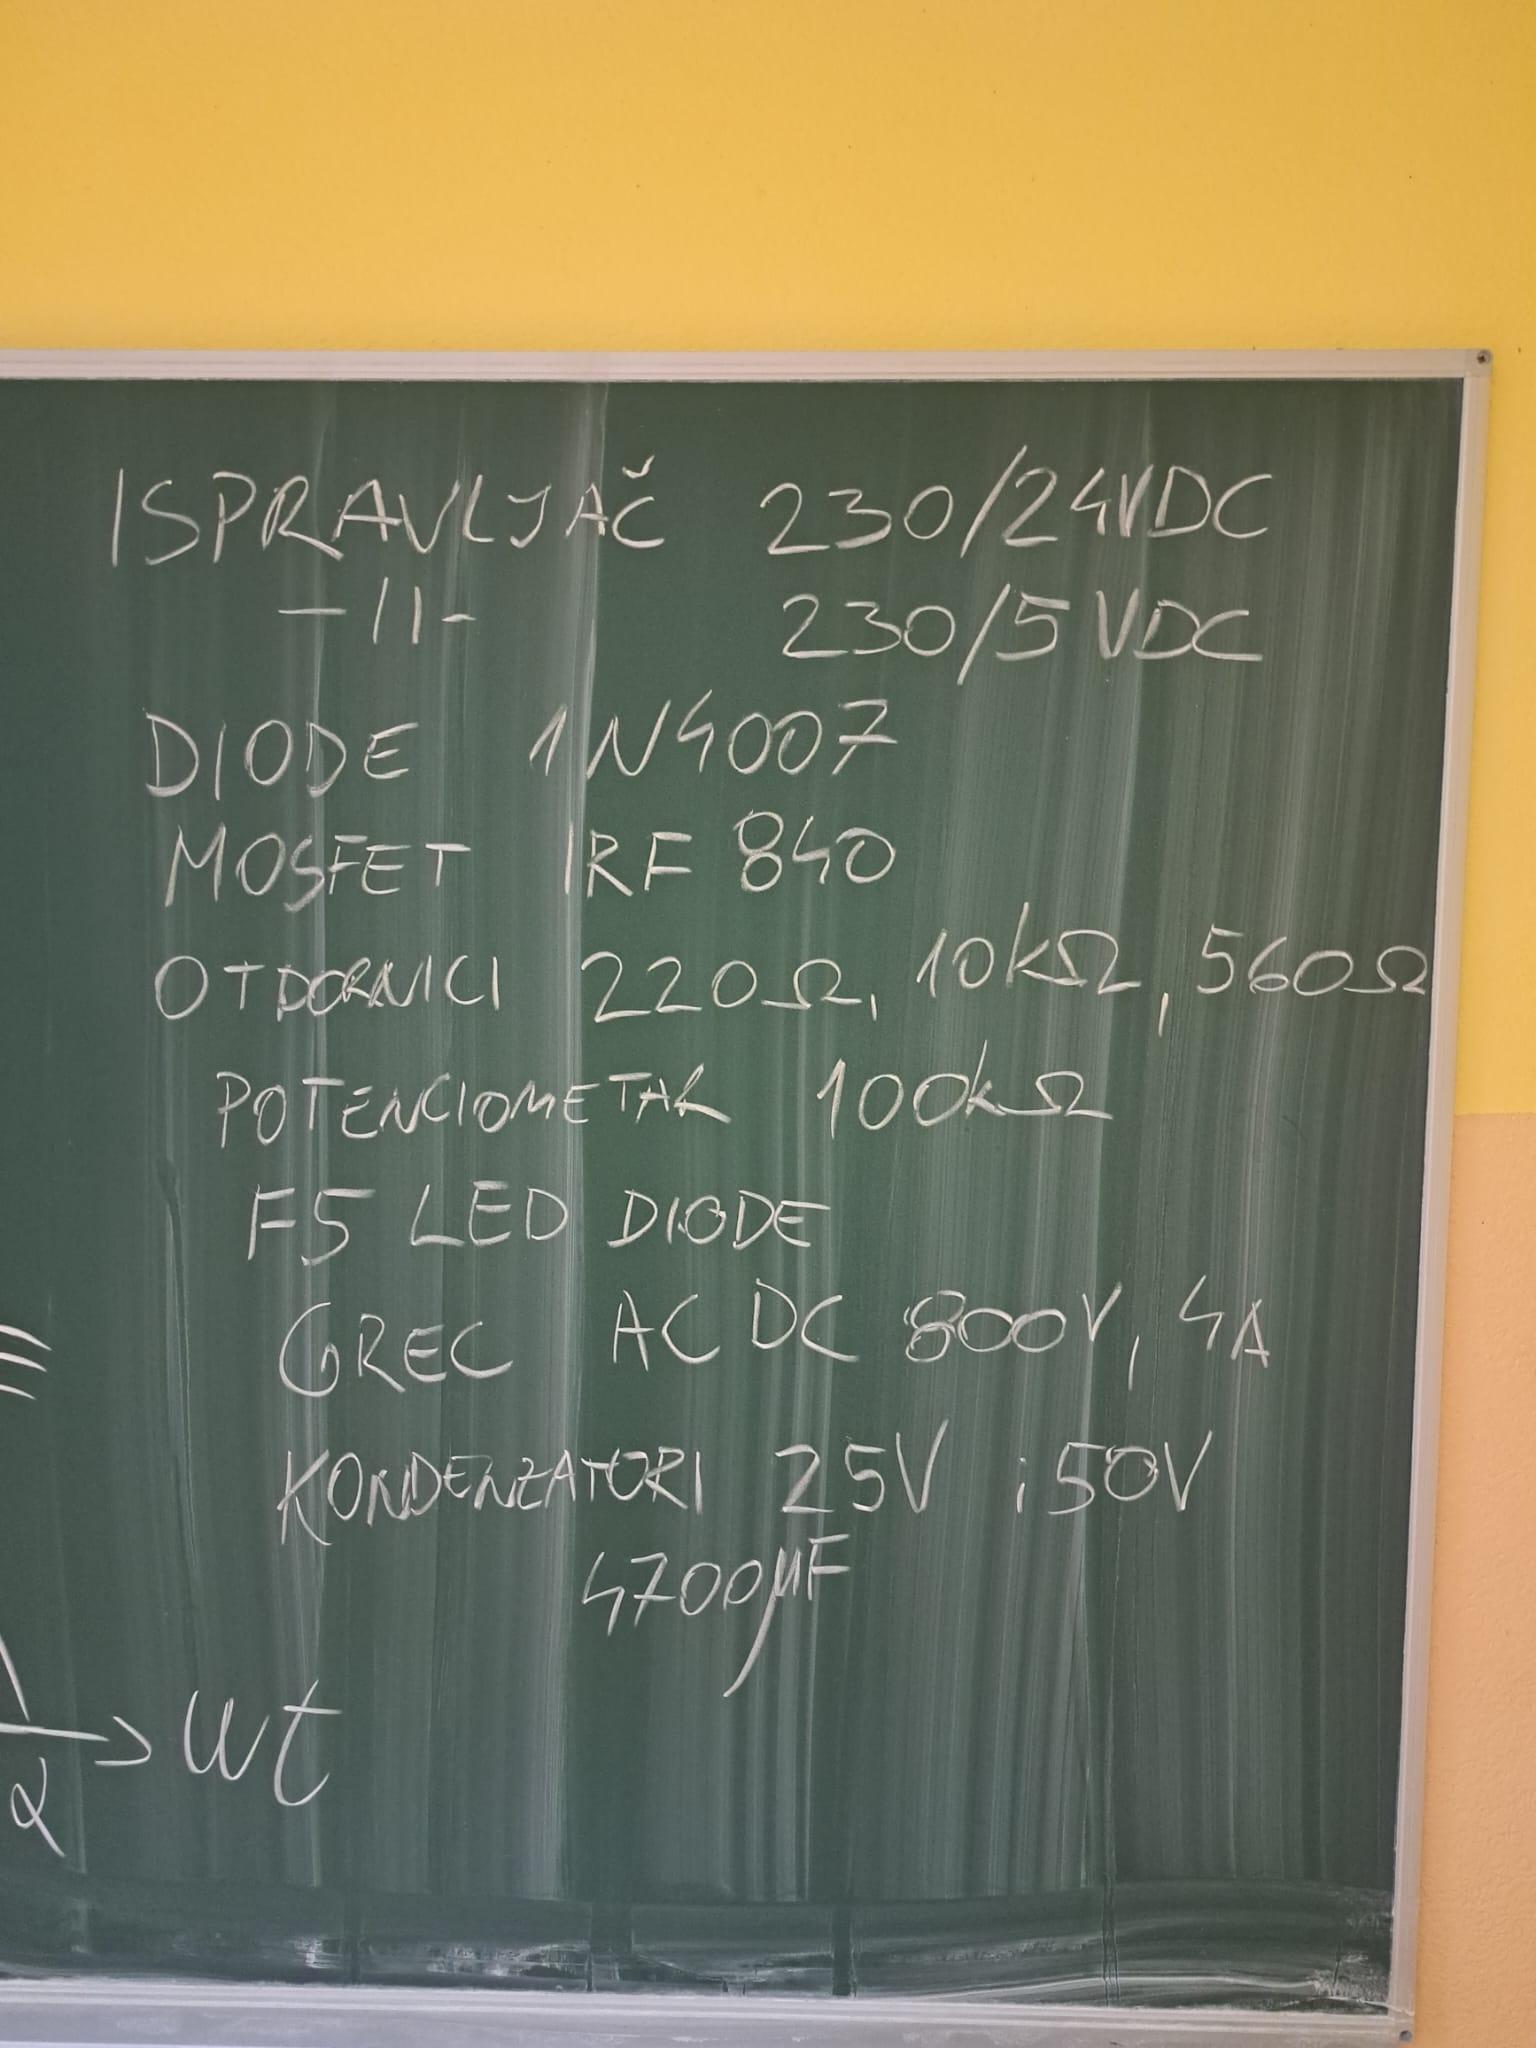 ISPRAVLJAČ 230/24VDC
-11- 230/5 VDC
DIODE 1N4007
MOSFET IRF 840
OTPORNICI 220Ω, 10kΩ, 560Ω
POTENCIOMETAR 100kΩ
F5 LED DIODE
GREC AC DC 800V, 4A
KONDENZATORI 25V i 50V
4700µF
→ ωt
α